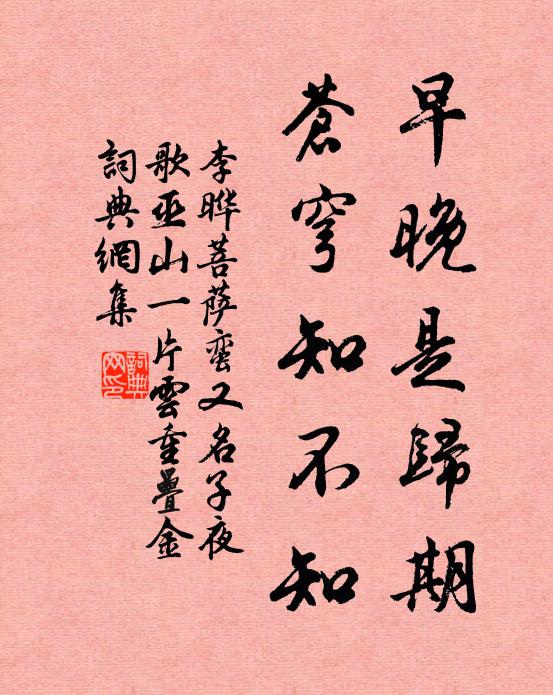 早晚是歸期
蒼穹知不知
李晔菩薩蠻又名子夜
歌巫山一片雲重疊金
詞典網集
詞典網印